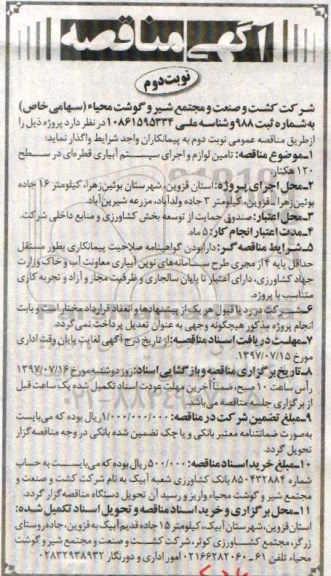 آگهی مناقصه
نوبت دوم
شرکت کشت و صنعت و مجتمع شیر و گوشت محیاء (سهامی خاص)
به شماره ثبت ۹۸۸ و شناسه ملی ۱۰۸۶۱۵۹۵۳۳۴ در نظر دارد پروژه ذیل را
از طریق مناقصه عمومی نوبت دوم به پیمانکاران واجد شرایط واگذار نماید:
۱-موضوع مناقصه: تامین لوازم و اجرای سیستم آبیاری قطره‌ای در سطح
۱۲۰ هکتار
۲-محل اجرای پروژه: استان قزوین، شهرستان بوئین‌زهرا، کیلومتر ۱۶ جاده
بوئین‌زهرا - قزوین، کیلومتر ۳ جاده ولدآباد، مزرعه شیرین‌آباد.
۳-محل اعتبار: صندوق حمایت از توسعه بخش کشاورزی و منابع داخلی شرکت.
۴-مدت اعتبار انجام کار: ۵ ماه.
۵-شرایط مناقصه گر: دارا بودن گواهینامه صلاحیت پیمانکاری بطور مستقل
حداقل پایه ۴ از مجری طرح سامانه‌های نوین آبیاری معاونت آب و خاک وزارت
جهاد کشاورزی، دارای اعتبار تا پایان سالجاری و ظرفیت مجاز و آزاد و تجربه کاری
متناسب با پروژه.
۶-شرکت در رد یا قبول هر یک از پیشنهادها و انعقاد قرارداد مختار است و بابت
انجام پروژه مذکور هیچگونه وجهی به عنوان تعدیل پرداخت نمی‌گردد.
۷-مهلت دریافت اسناد مناقصه: از تاریخ درج آگهی لغایت پایان وقت اداری
مورخ ۱۳۹۷/۰۷/۱۵
۸-تاریخ برگزاری مناقصه و بازگشایی اسناد: روز دوشنبه مورخ ۱۳۹۷/۰۷/۱۶
رأس ساعت ۱۰ صبح، ضمناً آخرین مهلت عودت اسناد تکمیل شده یک ساعت قبل
از برگزاری جلسه مناقصه می‌باشد.
۹-مبلغ تضمین شرکت در مناقصه: ۱/۰۰۰/۰۰۰/۰۰۰ ریال بوده که می‌بایست
به صورت ضمانتنامه معتبر بانکی و یا چک تضمین شده بانکی در وجه مناقصه گزار
تحویل گردد.
۱۰-مبلغ خرید اسناد مناقصه: ۵۰۰/۰۰۰ ریال بوده که می‌بایست به حساب
شماره ۸۵۰۴۳۲۸۸۴ بانک کشاورزی شعبه آبیک به نام شرکت کشت و صنعت و
مجتمع شیر و گوشت محیاء واریز و رسید آن تحویل دستگاه مناقصه گزار گردد.
۱۱-محل برگزاری و خرید اسناد مناقصه و تحویل اسناد تکمیل شده:
استان قزوین، شهرستان آبیک، کیلومتر ۱۵ جاده قدیم آبیک به قزوین، جاده روستای
زرگر، مجتمع کشاورزی کوثر، شرکت کشت و صنعت و مجتمع شیر و گوشت
محیاء تلفن ۶۱ - ۰۲۱۶۶۲۸۲۰۶۰ امور اداری و دورنگار ۰۲۸۳۲۹۳۸۹۳۲